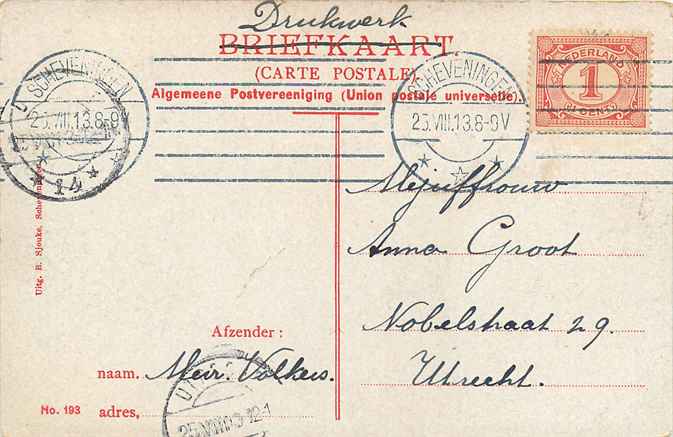 Drukwerk
BRIEFKAART
(CARTE POSTALE)
Algemeene Postvereeniging (Union postale universelle).
SCHEVENINGEN
25.VIII.13.8-9V
SCHEVENINGEN
25.VIII.13.8-9
14
NEDERLAND
1
CENT
Uitg. B. Sjouke, Scheveningen
Mejuffrouw
Anna Groot
Nobelstraat 29.
Utrecht.
Afzender:
naam. Meir. Volkers.
No. 193 adres,